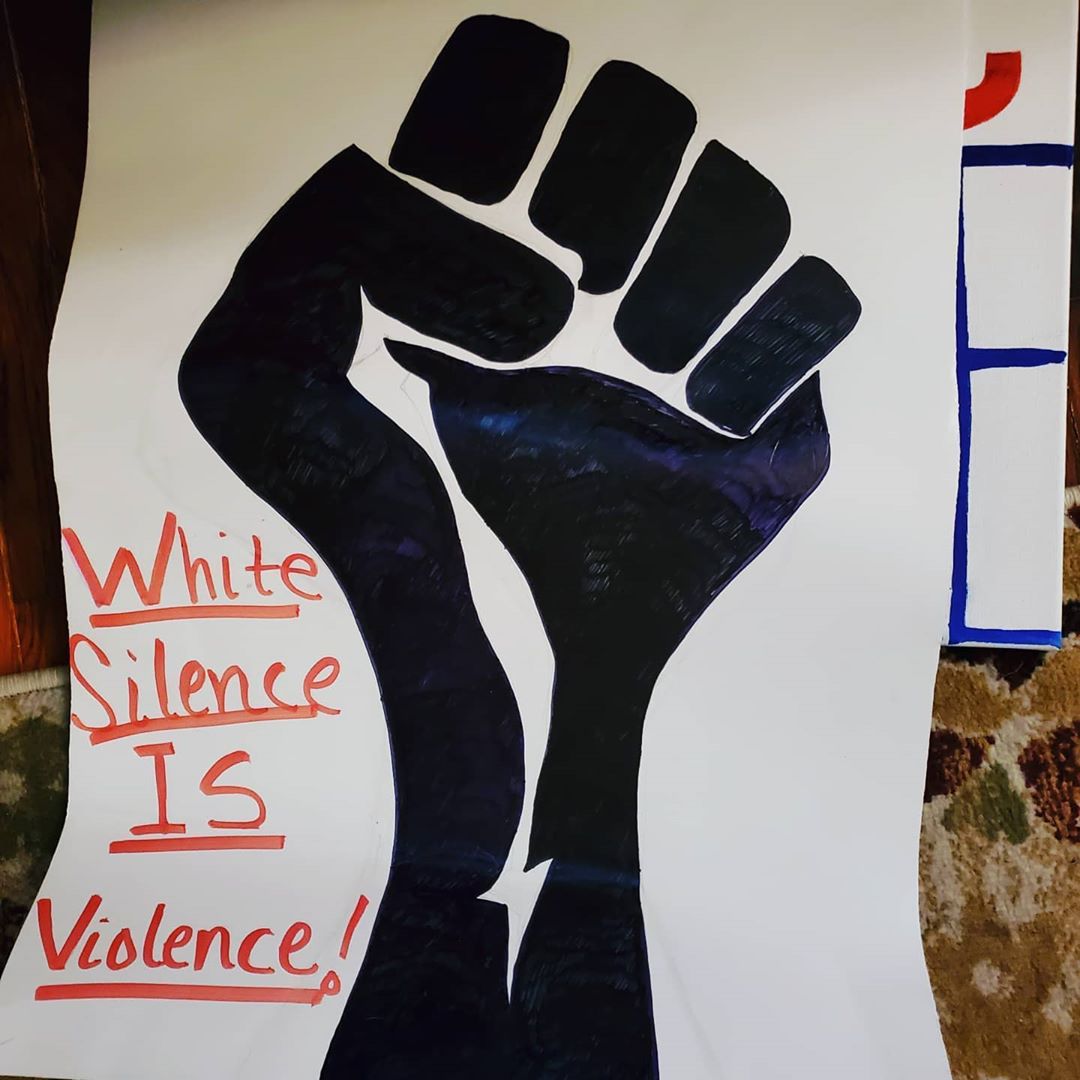 White
Silence
IS
Violence!